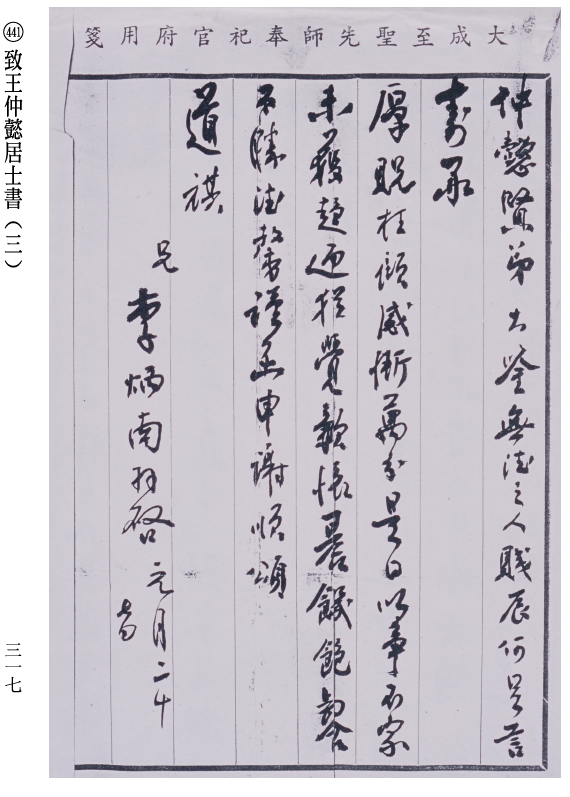 大成至聖先師奉祀官府用箋
仲懿賢弟大鑒無德之人賤辰何足言
壽承
厚貺枉顧感慚萬分是日以事不家
未獲趨迎猶覺歉悵
不勝德馨謹函申謝順頌
道祺
兄
李炳南拜啓
元月二十
㊶ 致王仲懿居士書（三）
三一七